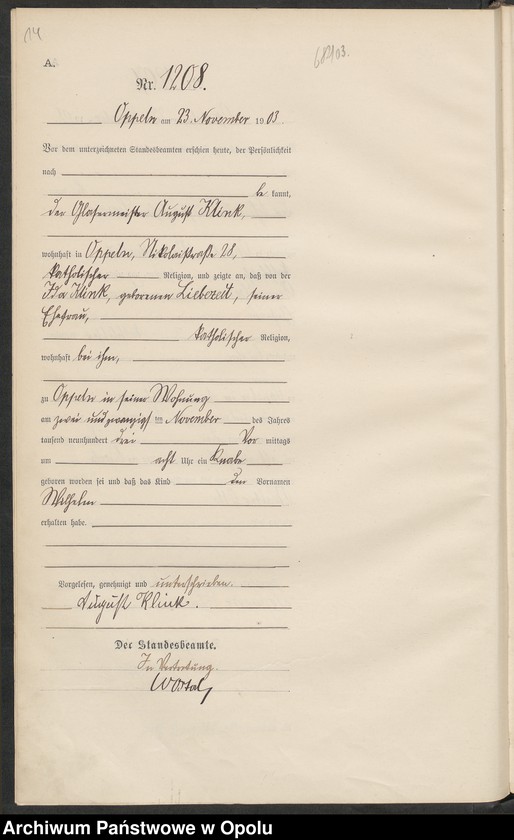 A.
Nr. 1208.
Oppeln am 23. November 1903.
Vor dem unterzeichneten Standesbeamten erschien heute, der Persönlichkeit
nach
be kannt,
der Glasermeister August Klink,
wohnhaft in Oppeln, Nikolaistraße 28,
katholischer Religion, und zeigte an, daß von der
Ida Klink, geborenen Liebezeit, seiner
Ehefrau,
katholischer Religion,
wohnhaft bei ihm,
zu Oppeln in seiner Wohnung
am zwei und zwanzigst en November des Jahres
tausend neunhundert drei Vor mittags
um acht Uhr ein Knabe
geboren worden sei und daß das Kind den Vornamen
Wilhelm
erhalten habe.
Vorgelesen, genehmigt und unterschrieben.
August Klink.
Der Standesbeamte.
In Vertretung.
Archiwum Państwowe w Opolu